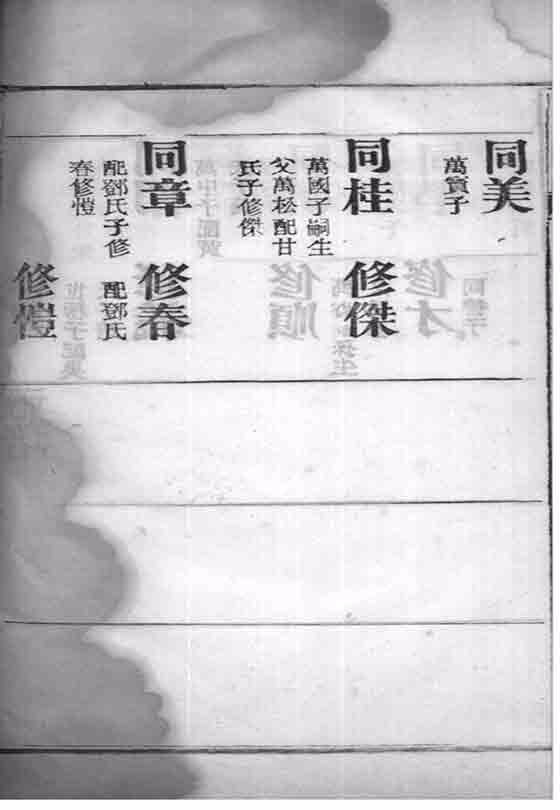 同美
萬質子
同桂
萬國子嗣生
父萬松配甘
氏子修傑
同章
配鄧氏子修
春修愷
修傑
修春
配鄧氏
修愷